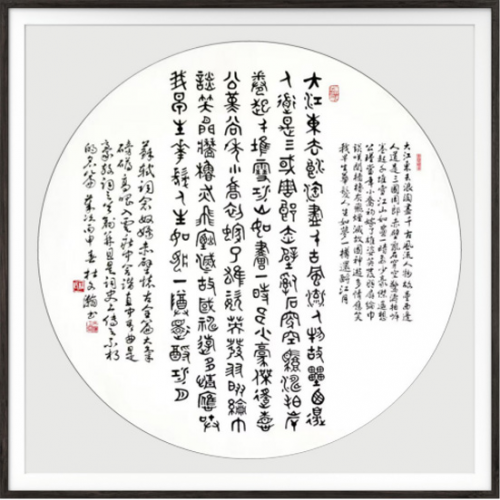 大江東去浪淘盡千古風流人物故壘西邊
人道是三國周郎赤壁亂石穿空驚濤拍岸
卷起千堆雪江山如畫一時多少豪傑遙想
公瑾當年小喬初嫁了雄姿英發羽扇綸巾
談笑間檣櫓灰飛煙滅故國神遊多情應笑
我早生華髮人生如夢一樽還酹江月
大江東去浪淘盡千古風流人物故壘西邊
人道是三國周郎赤壁亂石穿空驚濤拍岸
卷起千堆雪江山如畫一時多少豪傑遙想
公瑾當年小喬初嫁了雄姿英發羽扇綸巾
談笑間檣櫓灰飛煙滅故國神遊多情應笑
我早生華髮人生如夢一尊還酹江月
蘇軾詞念奴嬌赤壁懷古全篇大氣
磅礴高唱入雲壯中含深直中有曲是
豪放詞之且是詞史上傳之不朽
的名篇 歲次丙申春杜文瀚書